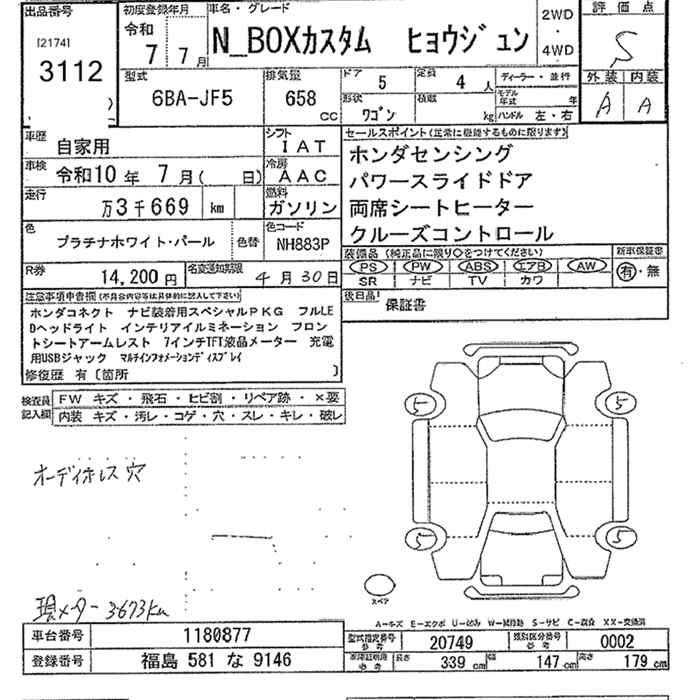 出品番号 初度登録年月 車名・グレード 評価点
[2174] 令和 2WD
3112 7 7月 N_BOXカスタム ヒョウジュン ・ S
4WD
型式 排気量 ドア 5 定員 4人 ディーラー・並行 外装 内装
6BA-JF5 658 CC 形状 ワゴン 積載 kg モデル年式 年 A A
ハンドル 左・右
車歴 自家用 シフト IAT セールスポイント(正常に機能するものに限ります)
車検 令和10年 7月( 日) 冷房 AAC ホンダセンシング
走行 万3千669 km 燃料 ガソリン パワースライドドア
両席シートヒーター
色 プラチナホワイト・パール 色替 色コード NH883P クルーズコントロール
装備品(純正品に限り○をつけてください) 新車保証書
R券 14,200円 名変通知期限 4月30日 PS PW ABS エアB AW 有・無
SR ナビ TV カワ
注意事項申告欄(不具合内容等は具体的に記入して下さい) 後日品 保証書
ホンダコネクト ナビ装着用スペシャルPKG フルLE
Dヘッドライト インテリアイルミネーション フロン
トシートアームレスト 7インチTFT液晶メーター 充電
用USBジャック マルチインフォメーションディスプレイ
修復歴 有〔箇所 〕
検査員記入欄 FW キズ・飛石・ヒビ割・リペア跡・×要
内装 キズ・汚レ・コゲ・穴・スレ・キレ・破レ
5 5
オーディオレス穴
5 5
スペア
現メーター 3673km
A-キズ E-エクボ U-凹み W-補修跡 S-サビ C-腐食 XX-交換済
車台番号 1180877 型式指定番号 参考 20749 類別区分番号 参考 0002
登録番号 福島 581 な 9146 車庫証明用 参考 長さ 339cm 幅 147cm 高さ 179cm